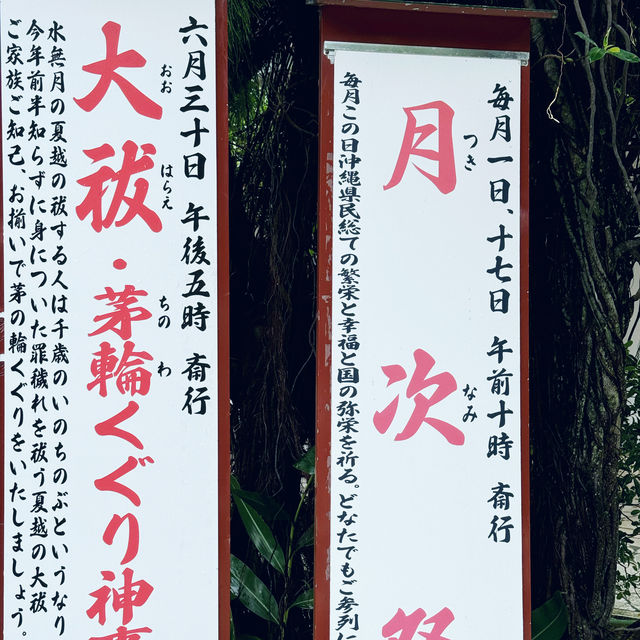 毎月一日、十七日 午前十時 斎行
月次祭
つき
なみ
毎月この日沖縄県民総ての繁栄と幸福と国の弥栄を祈る。どなたでもご参列に
六月三十日 午後五時 斎行
大祓・茅輪くぐり神事
おお
はらえ
ちの
わ
水無月の夏越の祓する人は千歳のいのちのぶというなり
今年前半知らずに身についた罪穢れを祓う夏越の大祓
ご家族ご知己、お揃いで茅の輪くぐりをいたしましょう。